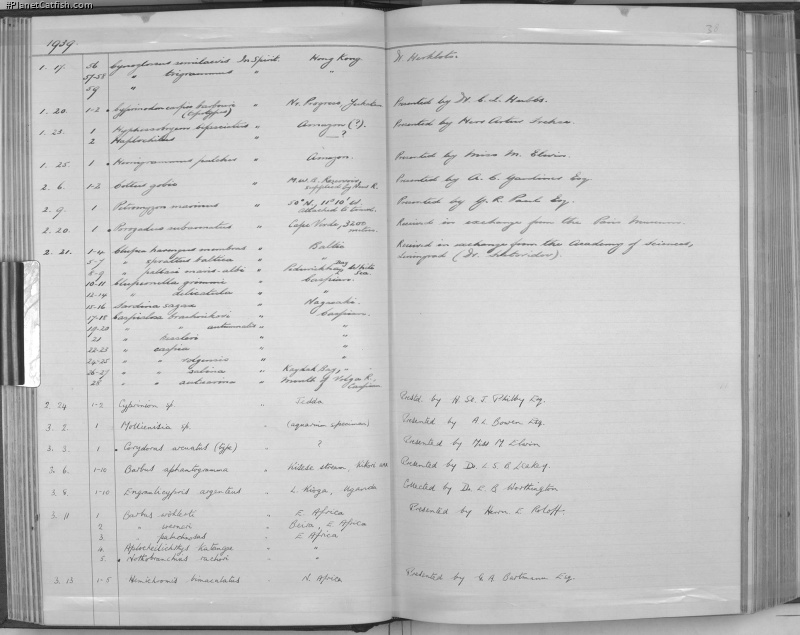 #PlanetCatfish.com
1939.
1. 17. 56 Cynoglossus semilaevis In Spirit Hong Kong W. Herklots.
57-58 " trigrammus " "
59 "
1. 20. 1-2 " Presented by Dr. C. L. Hubbs.
1. 23. 1 " Amazon (?). Presented by Herr Artur
2 Haplochilus " —?
1. 25. 1 Hemigrammus pulcher " Amazon. Presented by Miss M. Elwin.
2. 6. 1-2 Cottus gobio " Presented by A. C. Gardiner Esq
2. 9. 1 Petromyzon marinus " 50° N., 11° 10' W. Presented by Esq.
2. 20. 1 Porogadus " Cape Verde, 3200 metres. Received in exchange from the Paris Museum.
2. 21. 1-4 Clupea harengus membras " Baltic Received in exchange from the Academy of Sciences,
5-7 " sprattus baltica " " Leningrad (Dr. Svetovidov).
8-9 " pallasi maris-albi " White Sea
10-11 Clupeonella grimmi " Caspian.
12-14 " delicatula " "
15-16 Sardina sagax " Nagasaki.
17-18 Caspialosa brashnikovi " Caspian.
19-20 " " autumnalis " "
21 " kessleri " "
22-23 " caspia " "
24-25 " volgensis " "
26-27 " " salina " Kaydak Bay, "
28 " " " Mouth of Volga R. Caspian
2. 24 1-2 Cyprinion sp. " Jedda Presd. by H. St. J Philby Esq.
3. 2. 1 Mollienisia sp. (aquarium specimen) Presented by A L Bowen Esq.
3. 3. 1 Corydoras arcuatus (type) " ? Presented by Miss M Elwin
3. 6. 1-10 Barbus aphantogramma " Presented by Dr L S B Leakey.
3. 8. 1-10 Engraulicypris argenteus " L. Kioga, Uganda Collected by Dr. E B Worthington
3. 11 1 Barbus " E Africa Presented by Herrn E. Roloff.
2 " werneri " Beira, E Africa
3. " " E Africa
4. Aplocheilichthys katangae " "
5. Nothobranchius rachovi " "
3. 13 1-5 Hemichromis bimaculatus " N. Africa Presented by G A Bartmann Esq